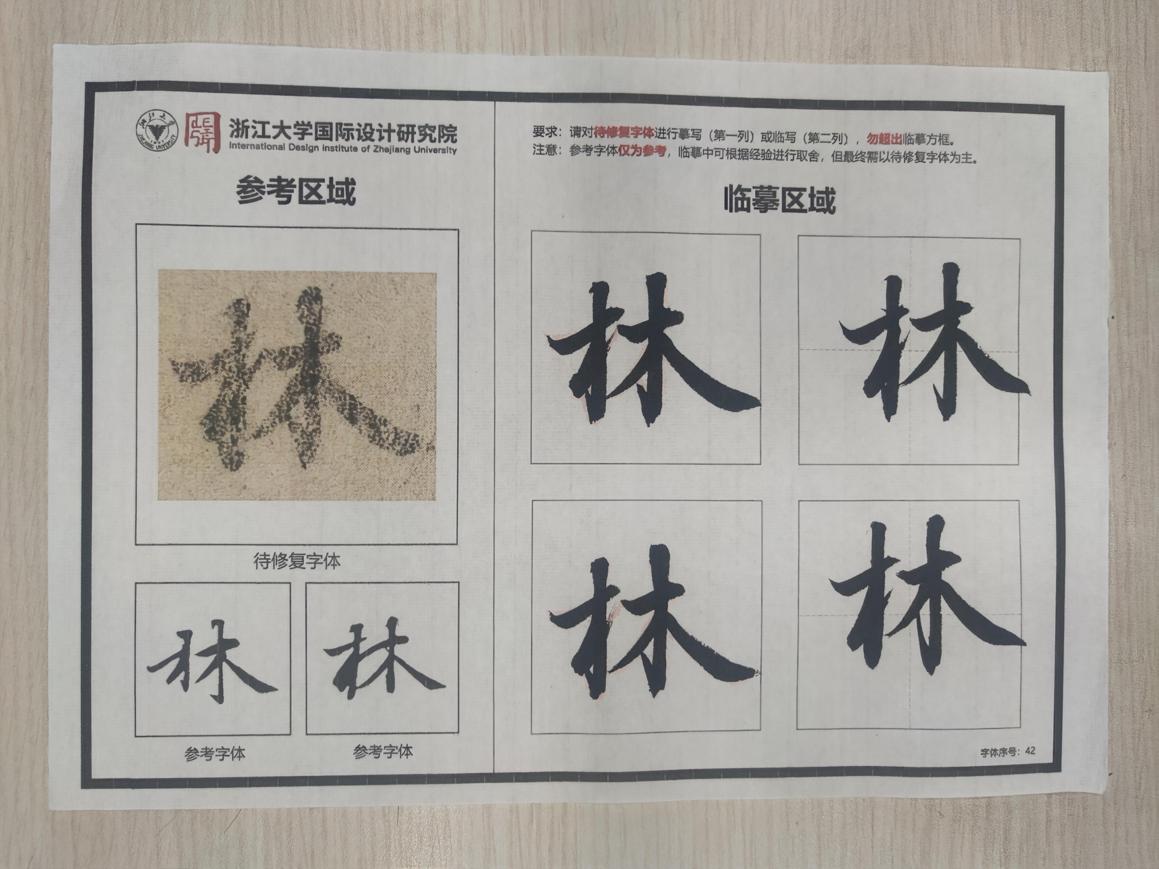 浙江大学国际设计研究院
International Design Institute of Zhejiang University
参考区域
林
待修复字体
林
林
参考字体
参考字体
要求：请对待修复字体进行摹写（第一列）或临写（第二列），勿超出临摹方框。
注意：参考字体仅为参考，临摹中可根据经验进行取舍，但最终需以待修复字体为主。
临摹区域
林
林
林
林
字体序号：42